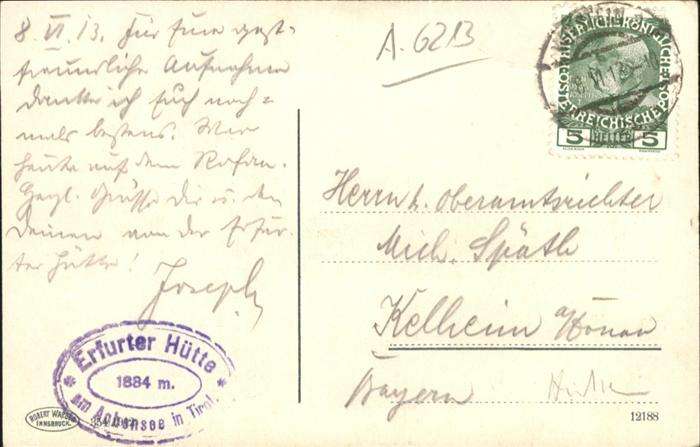 8. VI. 13. Für Eure gast-
freundliche Aufnahme
dankte ich Euch noch-
mals bestens. War
heute auf dem Rofan.
Herzl. Grüsse Dir u. den
Deinen von der Erfur-
ter Hütte!
Joseph
Erfurter Hütte
1884 m.
am Achensee in Tirol
ROBERT WARGER
INNSBRUCK
A. 6213
KAISERLICHE KÖNIGLICHE
ÖSTERREICHISCHE POST
5 HELLER 5
Herrn k. Oberamtsrichter
Mich. Späth
Kelheim a/Donau
Bayern
12188